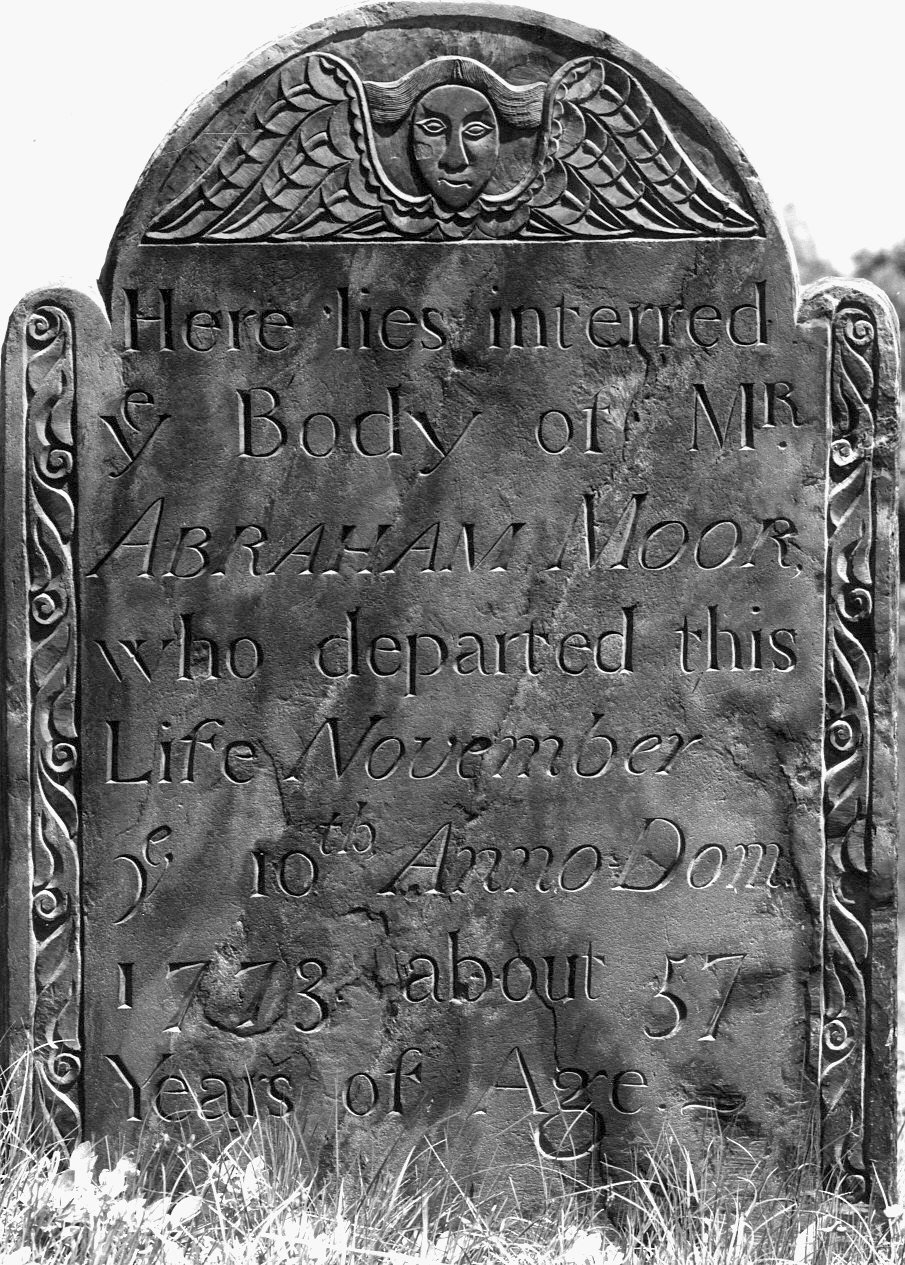 Here lies interred
yᵉ Body of Mᴿ.
ABRAHAM MOOR,
who departed this
Life November
yᵉ 10ᵗʰ Anno Dom.
1773 about 57
Years of Age.